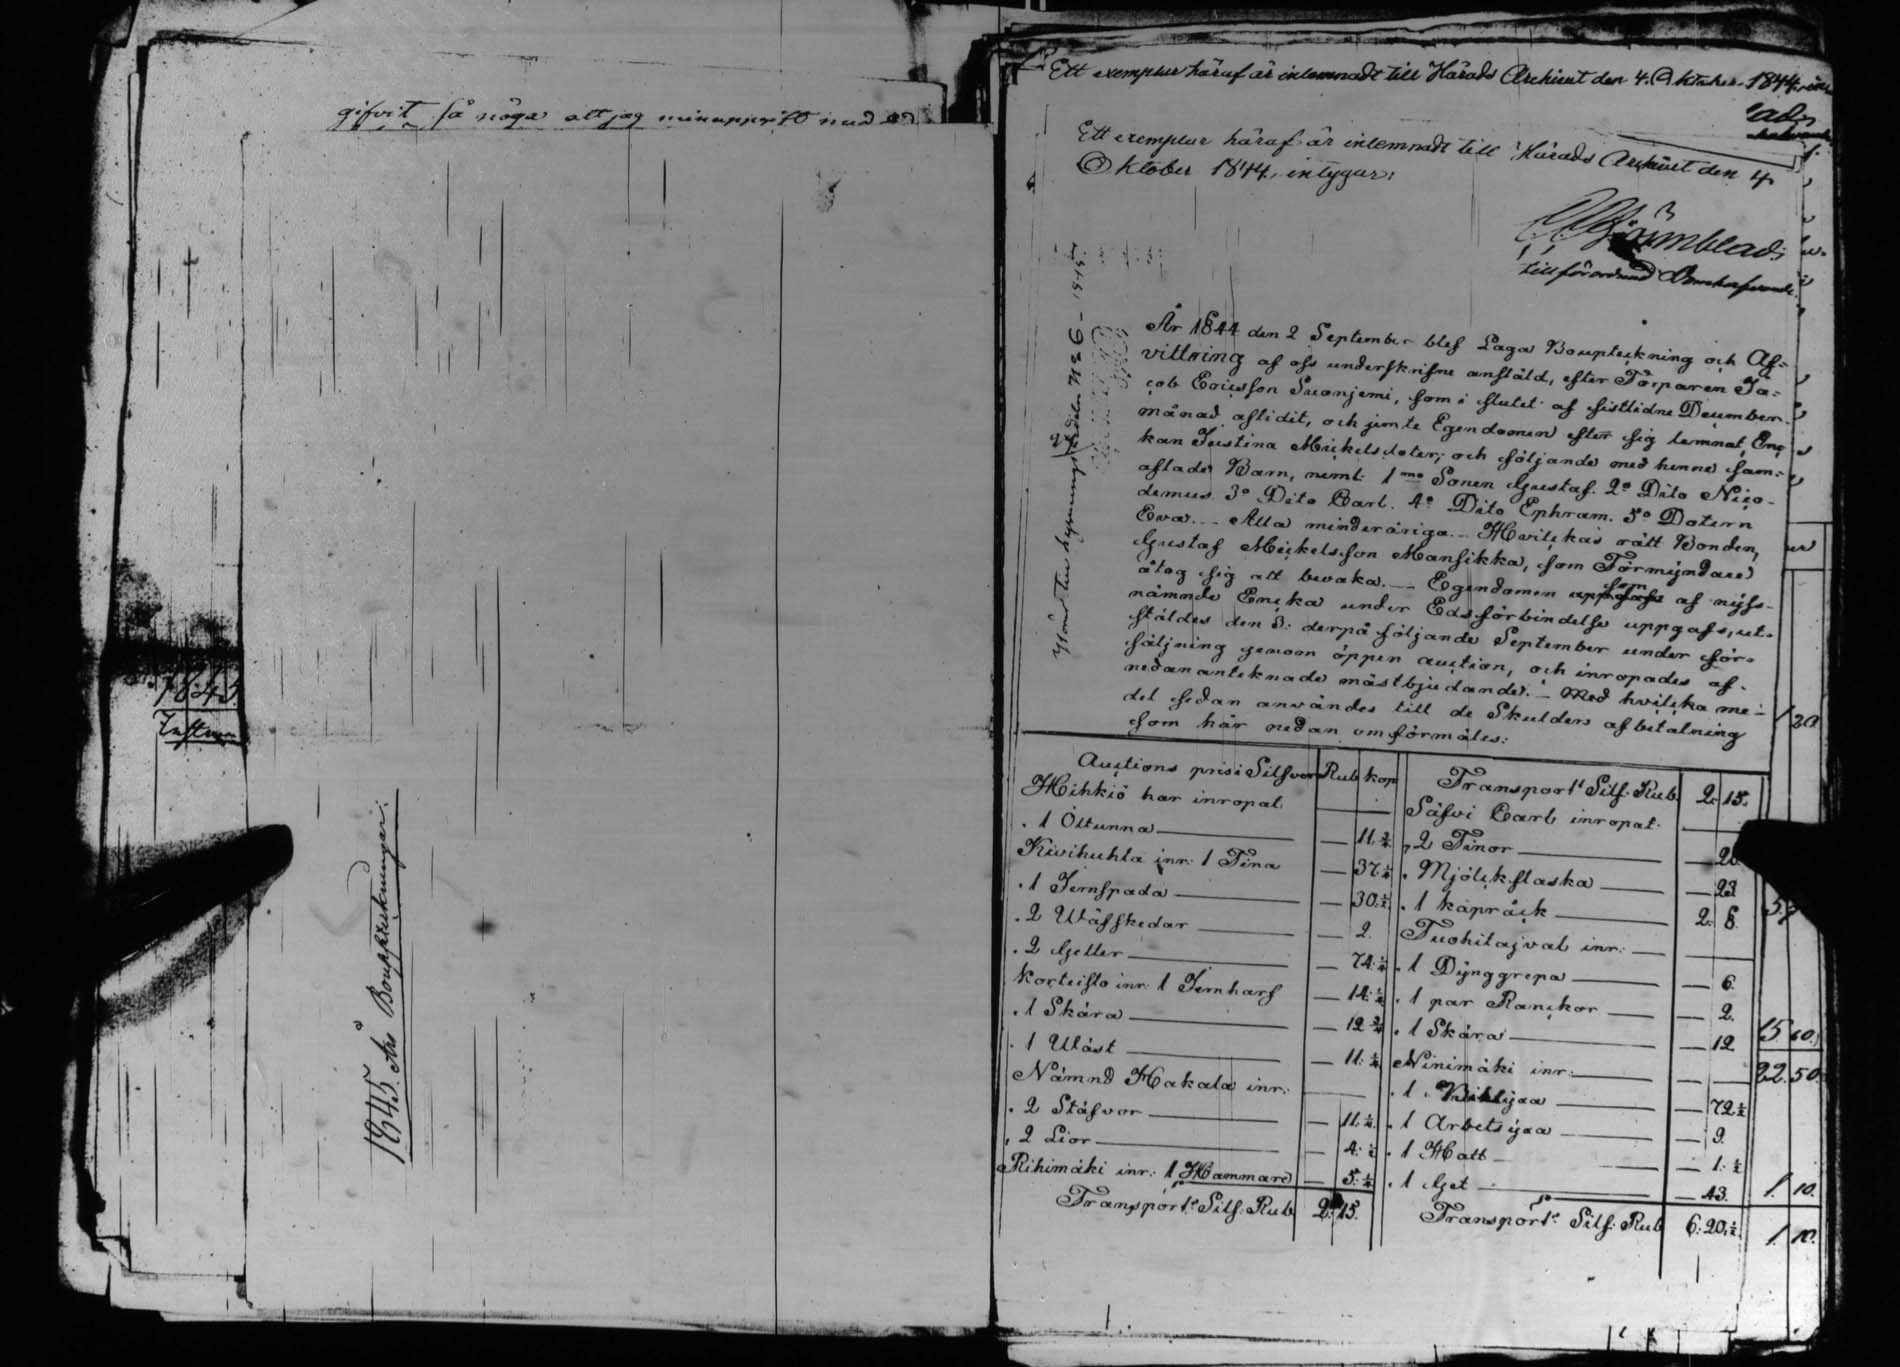 gifvit så noga att jag
1845 Års Bouppteckningar.
1845
Ett exemplar häraf är inlemnadt till Härads Archivet den 4. Oktober 1844
Ett exemplar häraf är inlemnadt till Härads Archivet den 4
Oktober 1844, intygar:
tillförordnad
År 1844 den 2 September blef Laga Boupteckning och Af-
vittring af oss underskrifne anstäld, efter Torparen Ja-
cob Ericsson Suonjemi, som i slutet af sistlidne December
månad aflidit, och jemte Egendomen efter sig lemnat, Enc
kan Justina Mickelsdoter, och följande med henne sam-
aflade Barn, neml: 1mo Sonen Gustaf. 2o Dito Nico-
demus. 3o Dito Carl. 4o Dito Ephram. 5o Dotern
Eva. — Alla minderåriga. — Hvilckas rätt Bonden,
Gustaf Mickelsson Mansikka, som Förmyndare
åtog sig att bevaka. — Egendomen som af nyss-
nämnde Encka under Edsförbindelse uppgafs, ut-
stäldes den 3: derpå följande September under för-
säljning genom öppen auction, och inropades af
nedananteknade mästbjudande. — Med hvilcka me-
del sedan användes till de Skulders afbetalning
som här nedan omförmäles:
Auctions pris i Silfver Rub kop
Hihkiö har inropat.
1 Öltunna — 11 3/4
Kivihuhta inr: 1 Tina — 37
1 Jernspada — 30
2 Wäfskedar — 2.
2 Getter — 74
Korteisto inr: 1 Jernharf — 14
1 Skära — 12
1 Wåst — 11
Nämnd Hakala inr:
2 Stäfvor — 11
2 Lior — 4
Rihimäki inr: 1 Hammare — 5
Transport Silf: Rub 2: 15.
Transport Silf: Rub. 2: 15.
Säfvi Carl inropat.
2 Tinor
Mjölckflaska — 23
1 kapräck 2: 8.
Tuohitajval inr:
1 Dynggrepa — 6.
1 par Ranckor — 2.
1 Skära — 12
Ninimäki inr:
1 — 72
1 Arbetsyxa — 9.
1 Hatt — 1.
1 Get — 43.
Transport Silf: Rub 6: 20
15. 60.
22. 50.
1. 10.
1. 10.